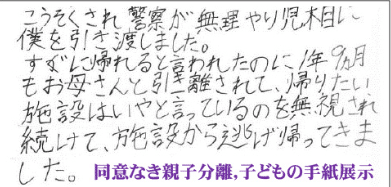 こうそくされ警察が無理やり児相に
僕を引き渡しました。
すぐに帰れると言われたのに1年9ヵ月
もお母さんと引き離されて、帰りたい
施設はいやと言っているのを無視され
続けて、施設から逃げ帰ってきま
した。
同意なき親子分離,子どもの手紙展示